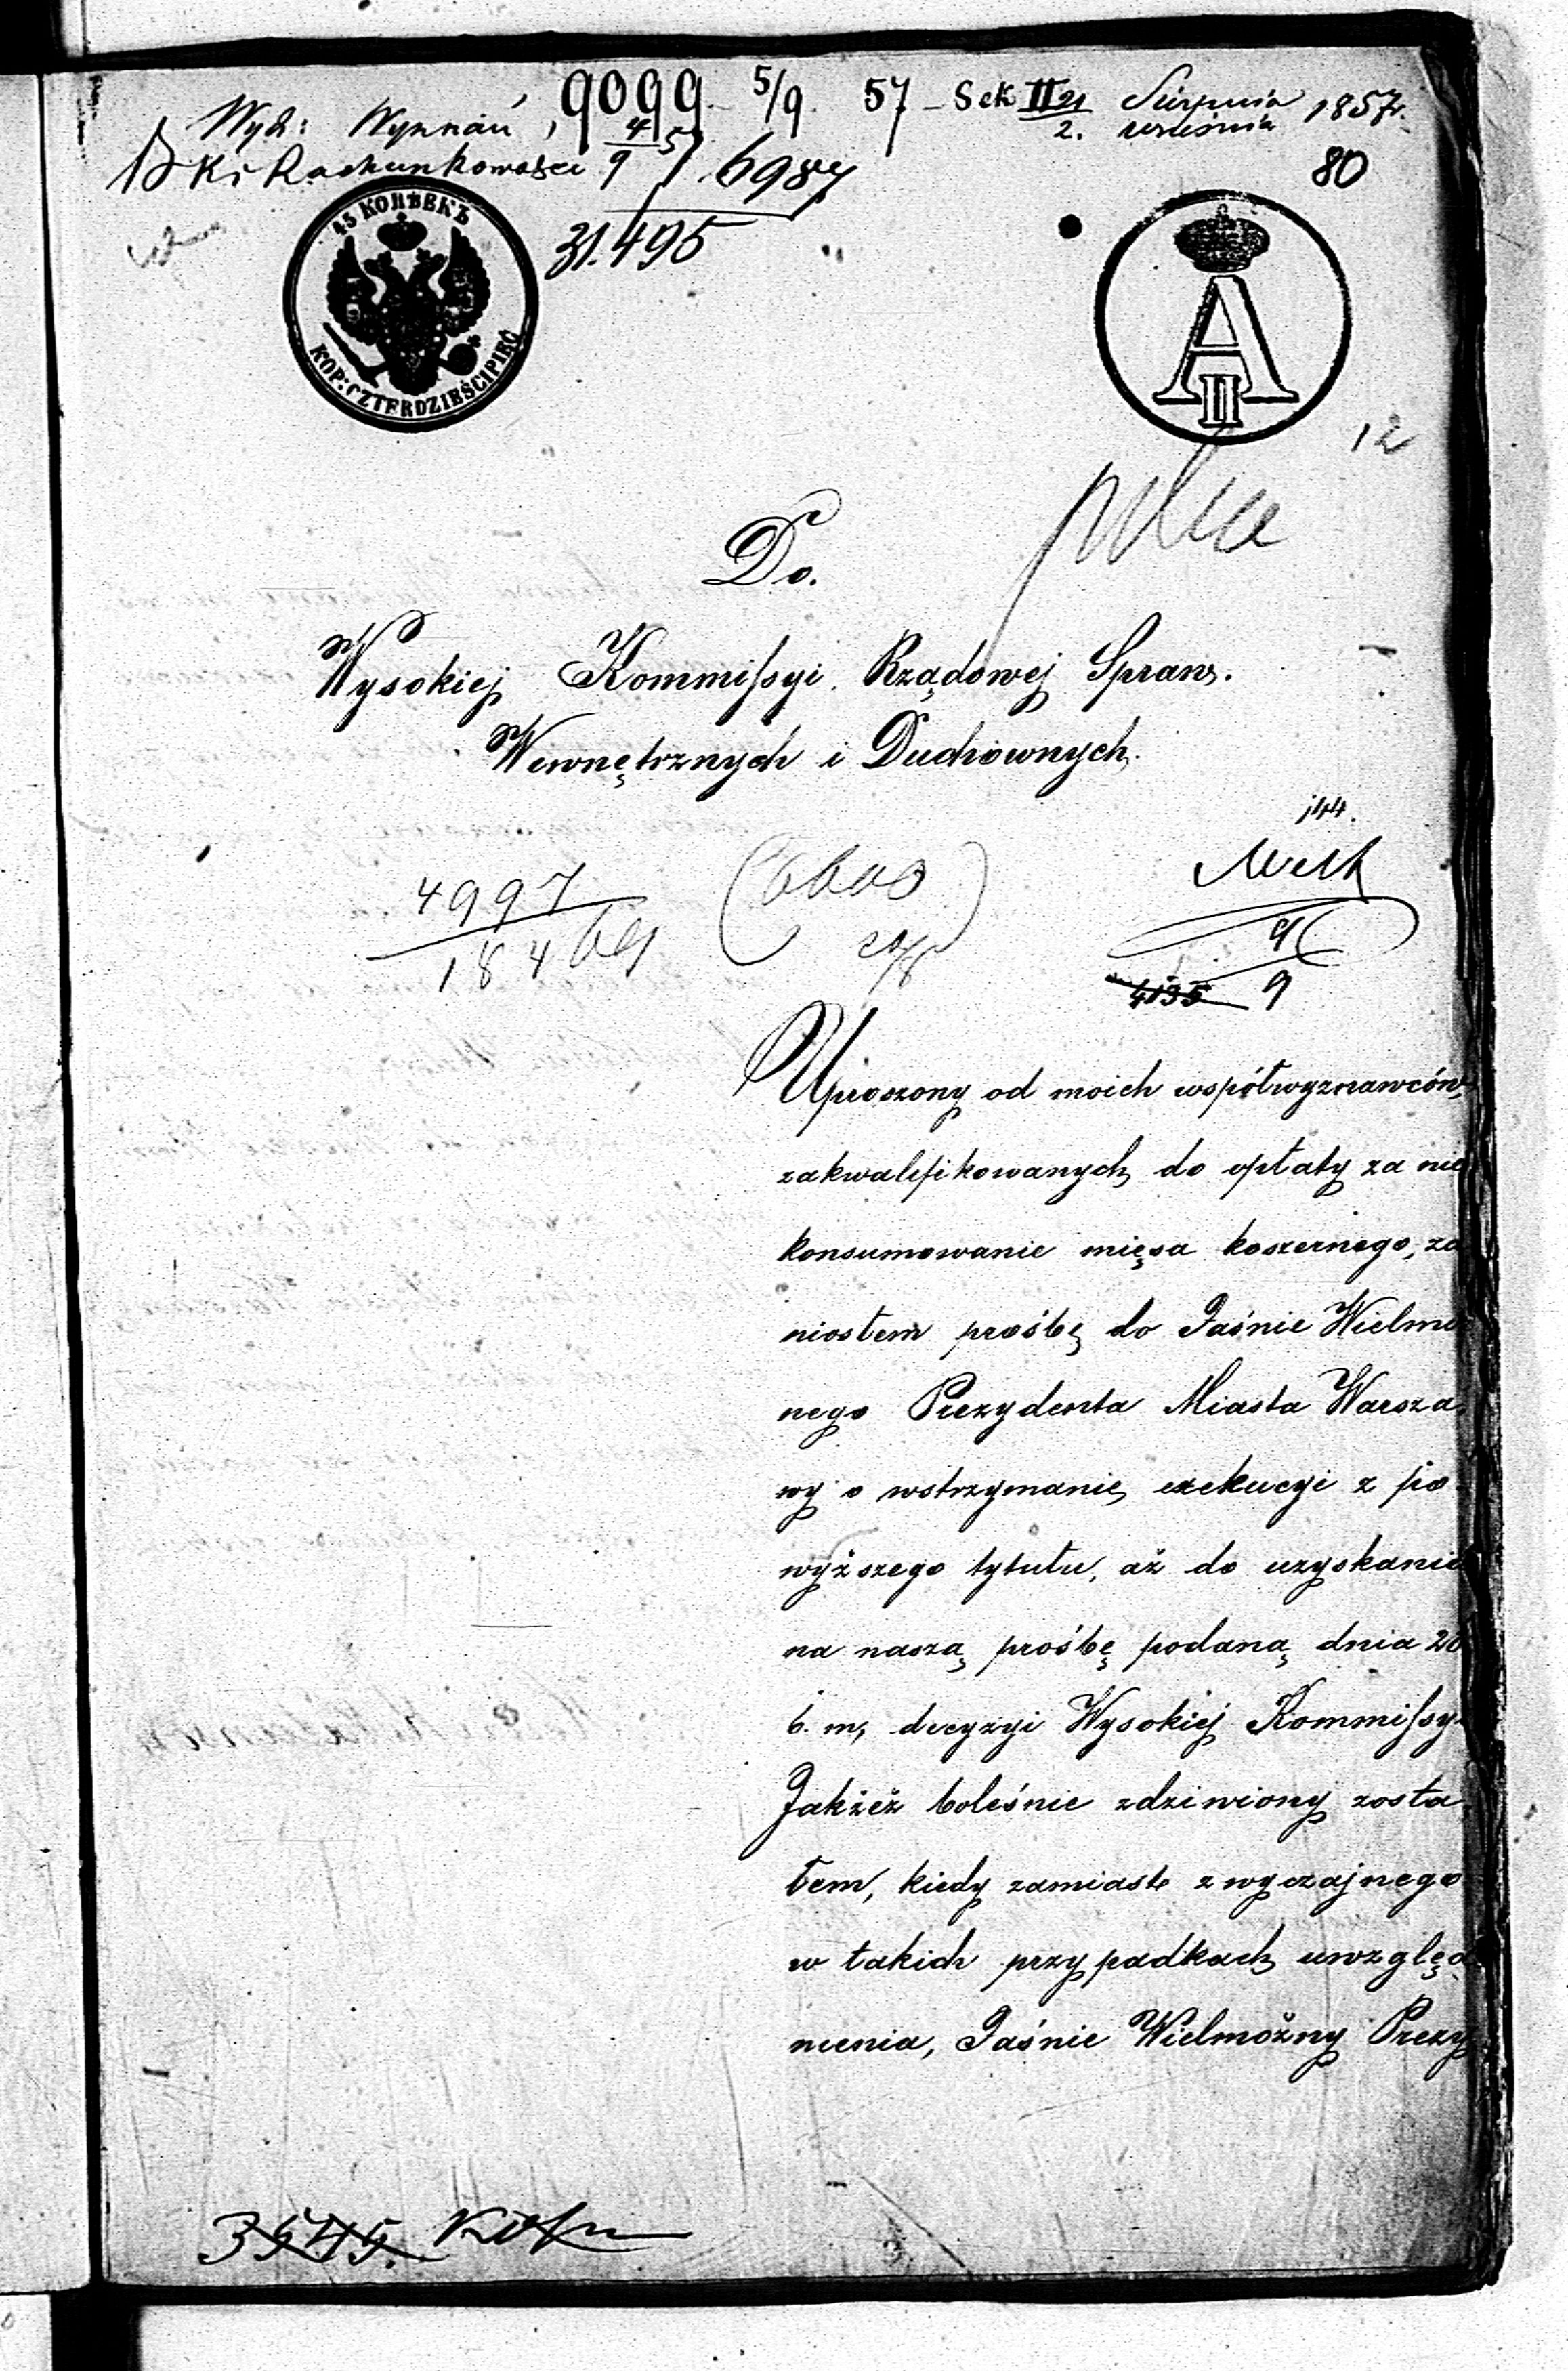 Wyd: Wyznań, 9099 5/9 57 - Sek II 21/2. Sierpnia/września 1857r.
Rachunkowości 4/9 57. 6987
31.495
80
45 КОПѢЕКЪ
KOP: CZTERDZIEŚCI PIĘĆ
A II
12
Do.
Wysokiej Kommissyi Rządowej Spraw.
Wewnętrznych i Duchownych.
144.
4997
9/9
4135
Uproszony od moich współwyznawców,
zakwalifikowanych do opłaty za nie
konsumowanie mięsa koszernego, za
niosłem prośbę do Jaśnie Wielmo
nego Prezydenta Miasta Warsza
wy o wstrzymanie exekucyi z po
wyższego tytułu, aż do uzyskania
na naszą prośbę podaną dnia 26
b. m, decyzyi Wysokiej Kommissyi
Jakżeż boleśnie zdziwiony zosta
łem, kiedy zamiast zwyczajnego
w takich przypadkach uwzględ
nienia, Jaśnie Wielmożny Prezy